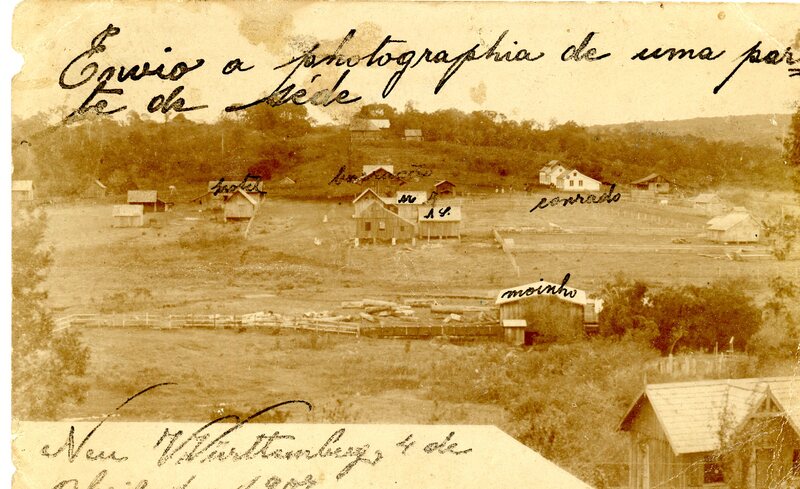 Envio a photographia de uma par=
te da séde
hotel
M.
A S.
conrado
moinho
Neu Württemberg, 4 de
de 190